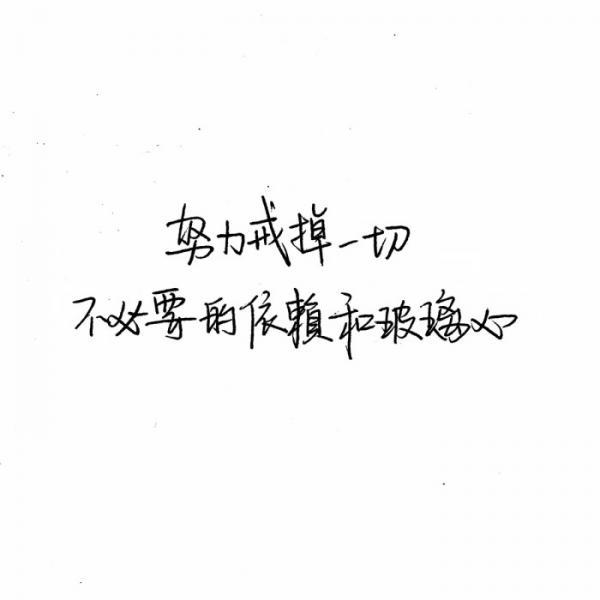 努力戒掉一切
不必要的依賴和玻璃心